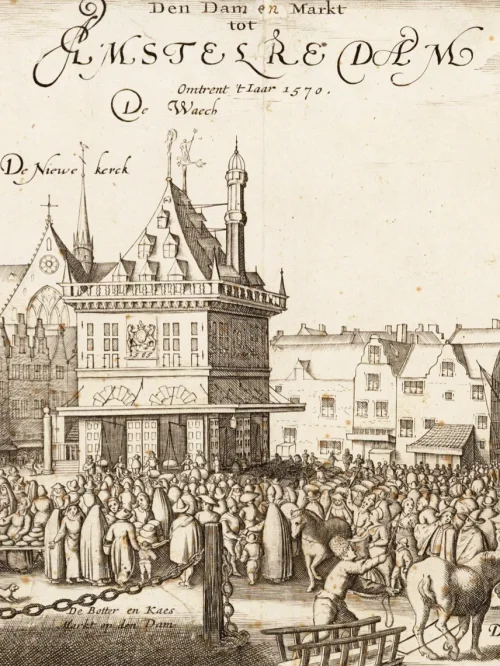 Den Dam en Markt
tot
AMSTELREDAM
Omtrent 't Iaar 1570.
De Waech
De Niewe kerck
De Botter en Kaes
Markt op den Dam